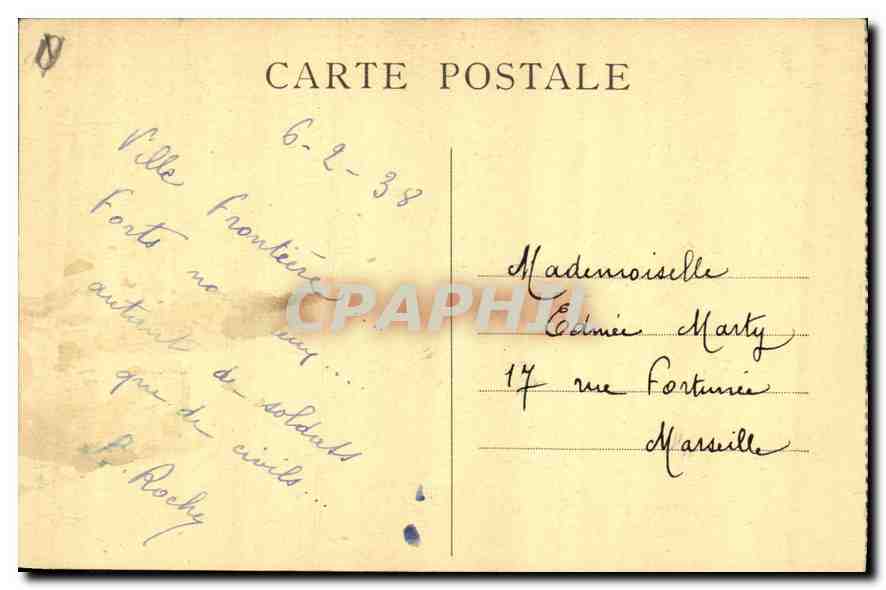 CARTE POSTALE
6-2-38
Ville Frontière
Forts
autant de soldats
que de civils...
Rochy
Mademoiselle
Edmée Marty
17 rue Fortunée
Marseille
CPAPHIL